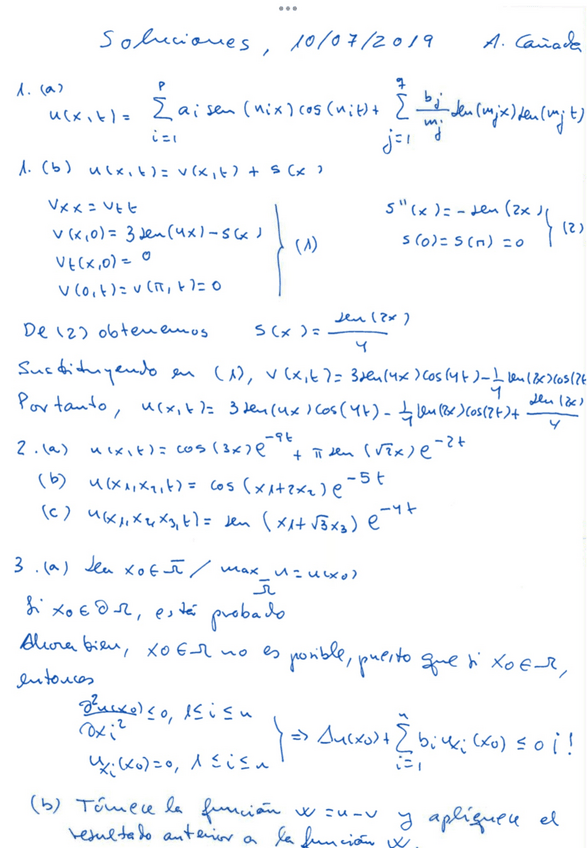 Soluciones, 10/07/2019 A. Cañada
1. (a)
u(x,t) = ∑_{i=1}^{p} a_i sen(n_i x) cos(n_i t) + ∑_{j=1}^{q} b_j/m_j sen(m_j x) sen(m_j t)
1. (b) u(x,t) = v(x,t) + s(x)
v_xx = v_tt
v(x,0) = 3 sen(4x) - s(x)
v_t(x,0) = 0
v(0,t) = v(π,t) = 0
(1)
s''(x) = - sen(2x)
s(0) = s(π) = 0
(2)
De (2) obtenemos s(x) = sen(2x)/4
Sustituyendo en (1), v(x,t) = 3 sen(4x) cos(4t) - 1/4 sen(2x) cos(2t
Por tanto, u(x,t) = 3 sen(4x) cos(4t) - 1/4 sen(2x) cos(2t) + sen(2x)/4
2. (a) u(x,t) = cos(3x) e^{-9t} + π sen(√2x) e^{-2t}
(b) u(x1,x2,t) = cos(x1+2x2) e^{-5t}
(c) u(x1,x2,x3,t) = sen(x1+√3x3) e^{-4t}
3. (a) Sea x0 ∈ Ω̄ / max_Ω̄ u = u(x0)
Si x0 ∈ ∂Ω, está probado
Ahora bien, x0 ∈ Ω no es posible, puesto que si x0 ∈ Ω,
entonces
∂²u(x0)/∂x_i² ≤ 0, 1 ≤ i ≤ n
u_{x_i}(x0) = 0, 1 ≤ i ≤ n
⇒ Δu(x0) + ∑_{i=1}^{n} b_i u_{x_i}(x0) ≤ 0 ¡!
(b) Tómese la función w = u - v y aplíquese el
resultado anterior a la función w.